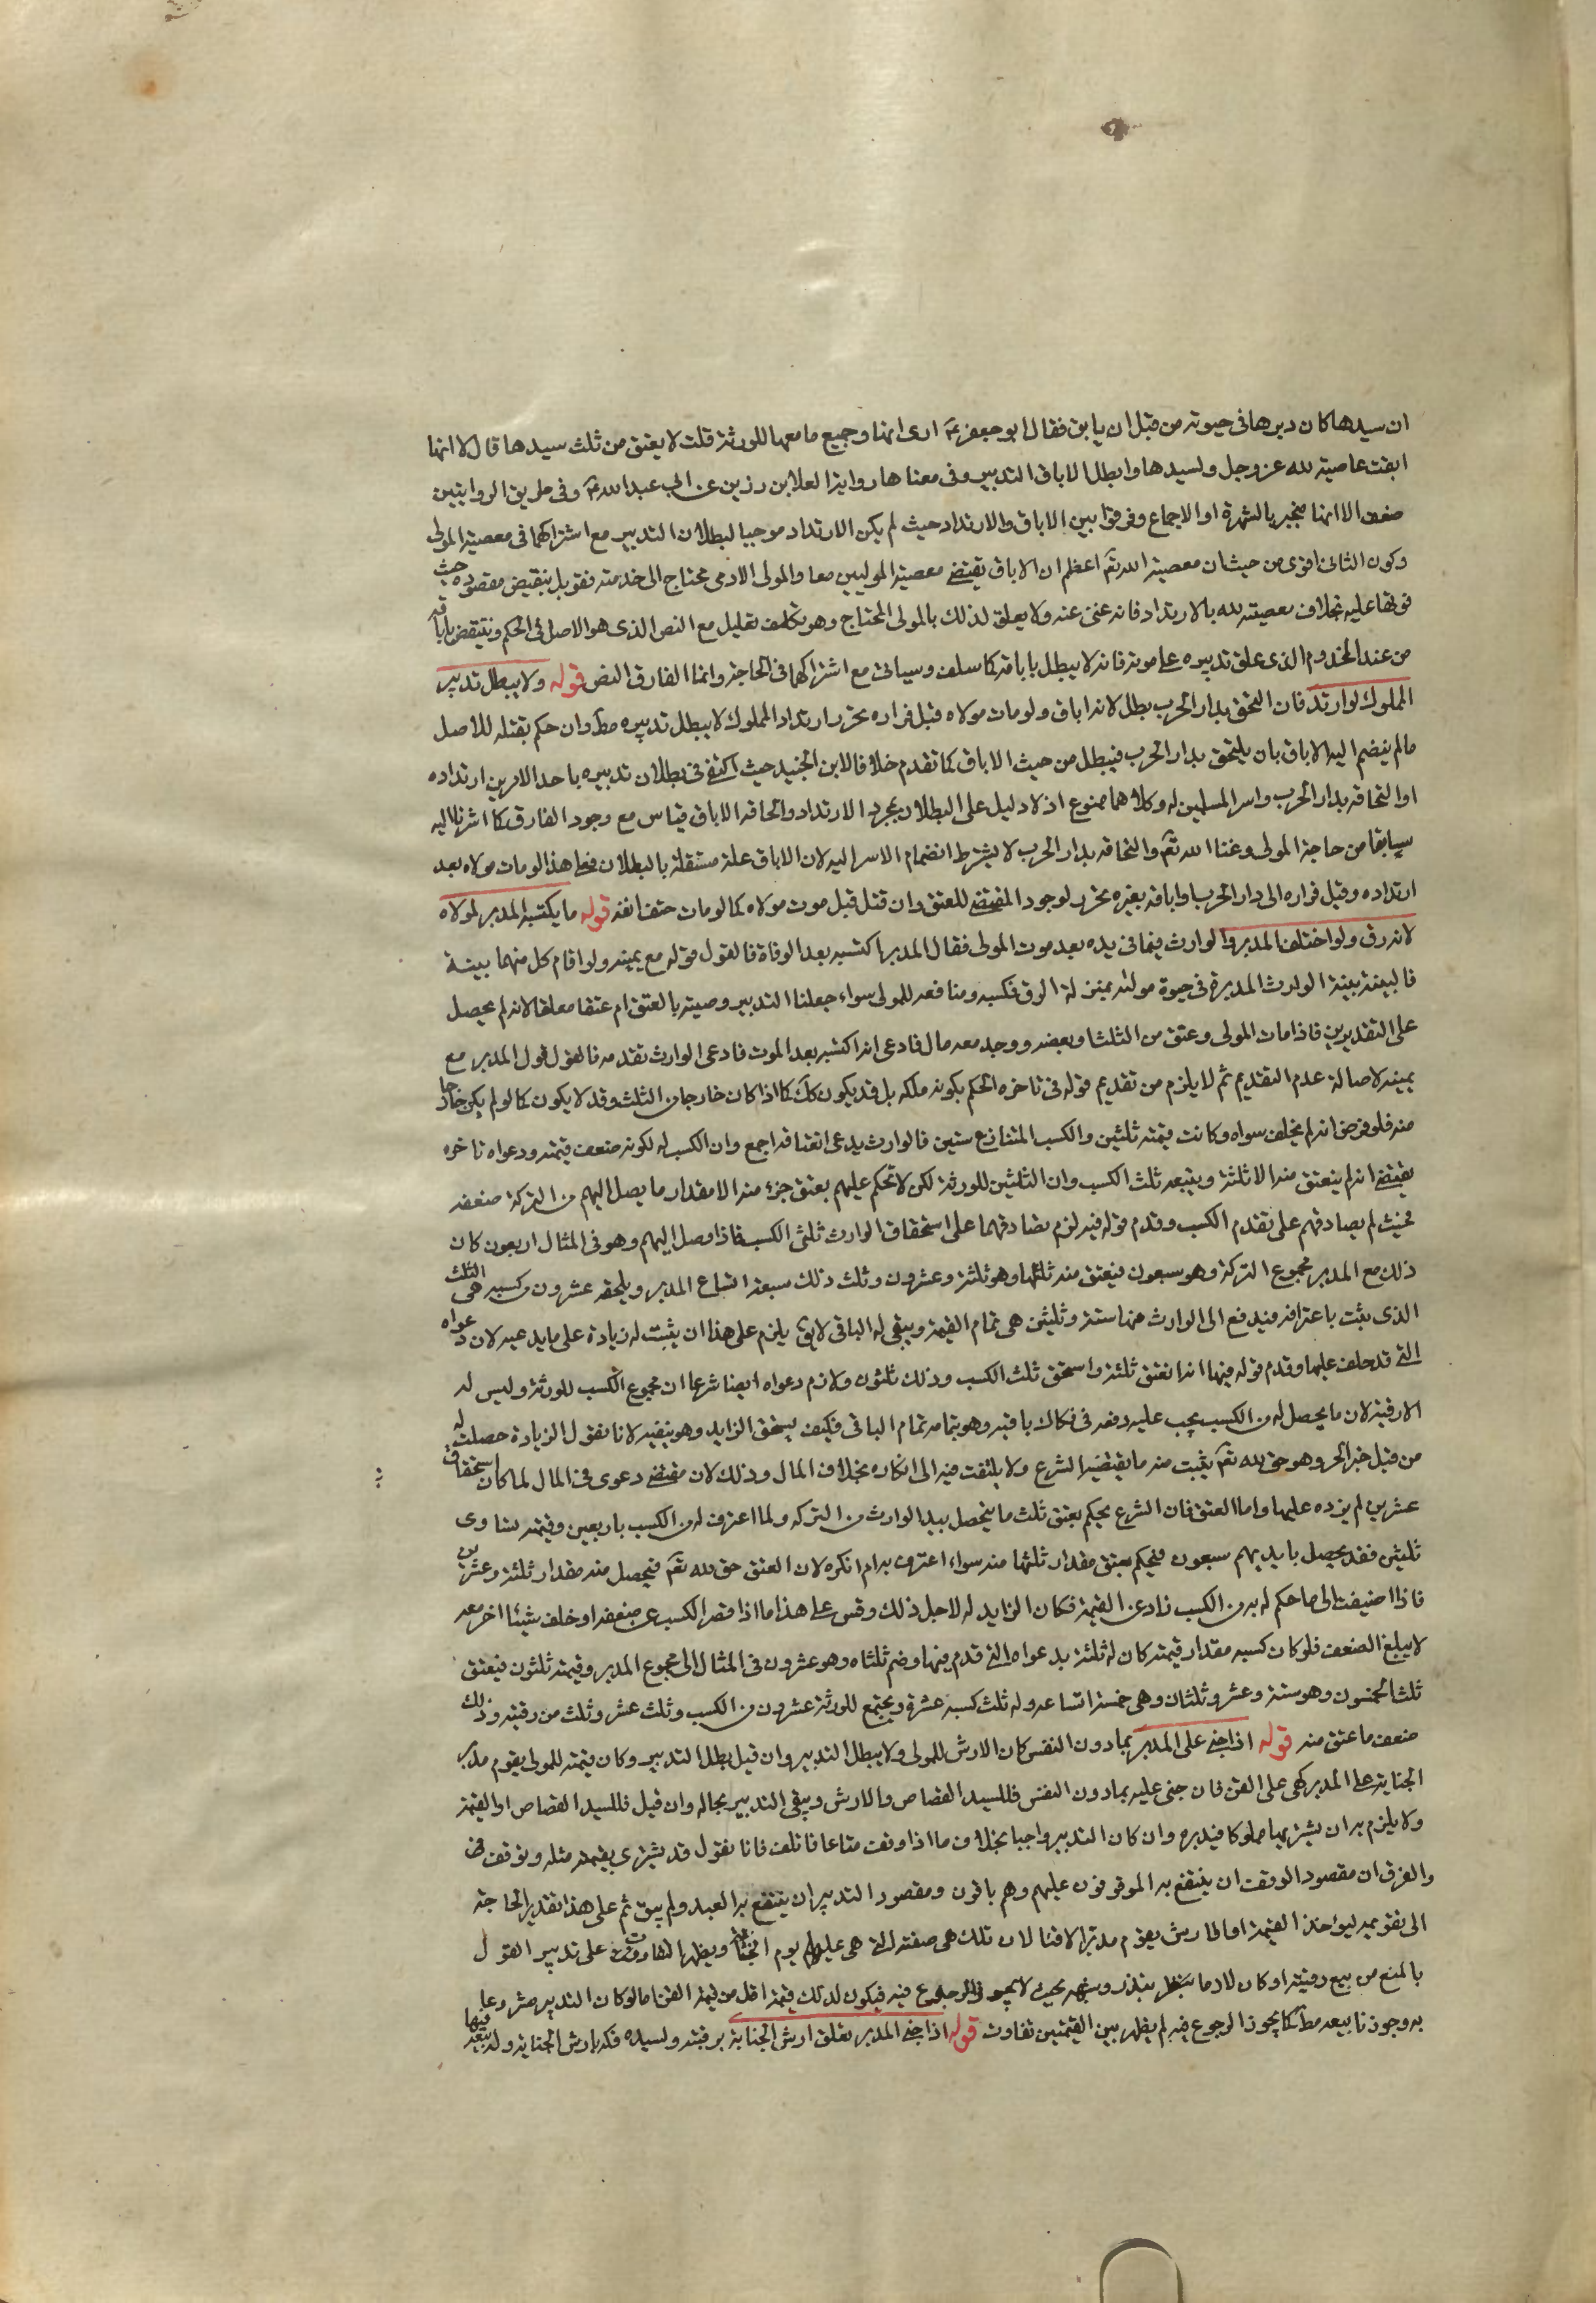 ان سيدها كان دبرها فى حيوته من قبل ان يابق فقال ابو جعفر ع ارى انها وجميع ما معها للورثة قلت لا يعتق من ثلث سيدها قال لا انها
ابقت عاصية لله عز وجل ولسيدها وابطل الاباق التدبير وفى معناها رواية العلا بن رزين عن ابى عبد الله ع وفى طريق الروايتين
ضعف الا انها منجبر بالشهرة او الاجماع وفرقوا بين الاباق والارتداد حيث لم يكن الارتداد موجبا لبطلان التدبير مع اشتراكهما فى معصية المولى
وكون الثانى اقوى من حيث ان معصية الله تع اعظم ان الاباق يقتضى معصية الموليين معا والمولى الادمى محتاج الى خدمته فقوبل بنقيض مقصوده حيث
فوتها عليه بخلاف معصيته لله بالارتداد فانه غنى عنه ولا يعلق لذلك بالمولى المحتاج وهو تكلف تعليل مع النص الذى هو الاصل فى الحكم وينتقض باباقه
من عند المخدوم الذى علق تدبيره على موته فانه لا يبطل باباقه كما سلف وسياتى مع اشتراكهما فى الحاجة وانما الفارق النص قوله ولا يبطل تدبير
المملوك لو ارتد فان التحق بدار الحرب بطل لانه اباق ولو مات مولاه قبل فراره تحرر ارتداد المملوك لا يبطل تدبيره مط وان حكم بقتله للاصل
ما لم ينضم اليه الاباق بان يلتحق بدار الحرب فيبطل من حيث الاباق كما تقدم خلافا لابن الجنيد حيث اكتفى فى بطلان تدبيره باحد الامرين ارتداده
او التحاقه بدار الحرب واسر المسلمين له وكلاهما ممنوع اذ لا دليل على البطلان بمجرد الارتداد والحاقه الاباق قياس مع وجود الفارق كما اشرنا اليه
سابقا من حاجة المولى وغنا الله تع والتحاقه بدار الحرب لا يشترط انضمام الاسر اليه لان الاباق علة مستقلة بالبطلان فعلى هذا لو مات مولاه بعد
ارتداده وقبل فراره الى دار الحرب او اباقه بغيره تحرر لوجود المقتضى للعتق وان قتل قبل موت مولاه كما لو مات حتف انفه قوله ما يكتسبه المدبر لمولاه
لانه رق ولو اختلف المدبر والوارث فيما فى يده بعد موت المولى فقال المدبر اكتسبه بعد الوفاة فالقول قوله مع يمينه ولو اقام كل منهما بينة
فالبينة بينة الوارث المدبر فى حيوة مولاه بمنزلة الرق فكسبه ومنافعه للمولى سواء جعلنا التدبير وصية بالعتق ام عتقا معلقا لانه لم يحصل
على التقديرين فاذا مات المولى وعتق من الثلث او بعضه ووجد معه مال فادعى انه اكتسبه بعد الموت فادعى الوارث تقدمه فالقول قول المدبر مع
يمينه لاصالة عدم التقديم ثم لا يلزم من تقديم قوله فى تاخره الحكم بكونه ملكه بل قد يكون كك كما اذا كان خارجا من الثلث وقد لا يكون كما لو لم يكن خارجا
منه فلو فرض انه لم يخلف سواه وكانت قيمته ثلثين والكسب المتنازع ستين فالوارث يدعى انعتاقه اجمع وان الكسب له لكونه ضعف قيمته ودعواه تاخره
يقتضى انه لم ينعتق منه الا ثلثه ويتبعه ثلث الكسب وان الثلثين للورثة لكن لا تحكم عليهم بعتق جزء منه الا مقدار ما يصل اليهم من التركة ضعفه
فحيث لم يصادقهم على تقدم الكسب وقدم قوله فيه لزم تصادقهما على استحقاق الوارث ثلثى الكسب فاذا وصل اليهم وهو فى المثال اربعون كان
ذلك مع المدبر مجموع التركة وهو سبعون فيعتق منه ثلثها وهو ثلثة وعشرون وثلث ذلك سبعة اتساع المدبر ويلحقه عشرون من كسبه هى الثلث
الذى يثبت باعترافه فيدفع الى الوارث منها ستة وثلثين هى تمام القيمة ويبقى له الباقى لا يق يلزم على هذا ان يثبت له زيادة على ما يدعيه لان دعواه
التى قد حلف عليها وقدم قوله فيها انه انعتق ثلثه واستحق ثلث الكسب وذلك ثلثون ولازم دعواه ايضا شرعا ان مجموع الكسب للورثة وليس له
الا رقبته لان ما يحصل له من الكسب يجب عليه دفعه فى فكاك باقيه وهو بتمامه تمام الباقى فكيف يستحق الزايد وهو ينفيه لانا نقول الزيادة حصلت له
من قبل خبر الحر وهو حق لله تع يثبت منه ما يقتضيه الشرع ولا يلتفت فيه الى انكاره بخلاف المال وذلك لان مقتضى دعوى فى المال لما كان استحقاق
عشرين لم يزده عليها واما العتق فان الشرع يحكم بعتق ثلث ما يحصل بيد الوارث من التركه ولما اعترف له من الكسب باربعين وقيمته تساوى
ثلثين فقد يحصل بايديهم سبعون فيحكم بعتق مقدار ثلثها منه سواء اعترف به ام انكره لان العتق حق لله تع فيحصل منه مقدار ثلثة وعشرين
فاذا اضيفت الى ما حكم له به من الكسب زاد عن القيمة فكان الزايد له لاجل ذلك وقس على هذا ما اذا قصر الكسب عن ضعفه او خلف شيئا اخر معه
لا يبلغ الضعف فلو كان كسبه مقدار قيمته كان له ثلثه بدعواه التى قدم فيها وضم ثلثاه وهو عشرون فى المثال الى مجموع المدبر وقيمته ثلثون فيعتق
ثلث الخمسون وهو ستة وعشر وثلثان وهى خمسة اتساعه وله ثلث كسبه عشرة ويجتمع للورثة عشرون من الكسب وثلث عشر وثلث من رقبته وذلك
ضعف ما عتق منه قوله اذا جنى على المدبر بما دون النفس كان الارش للمولى ولا يبطل التدبير وان قتل بطل التدبير وكان قيمته للمولى يقوم مدبرا
الجناية على المدبر كهى على القن فان جنى عليه بما دون النفس فللسيد القصاص والارش ويبقى التدبير بحاله وان قتل فللسيد القصاص او القيمة
ولا يلزم به ان يشترى بها مملوكا فيدبره وان كان التدبير واجبا بخلاف ما اذا وقف متاعا فاتلف فانا نقول قد يشترى بقيمته مثله ويوقف
والفرق ان مقصود الوقف ان ينتفع به الموقوفون عليهم وهم باقون ومقصود التدبير ان ينتفع به العبد ولم يبق ثم على هذا تقدير الحاجة
الى تقويمه ليؤخذ القيمة او الارش يقوم مدبرا لا قنا لان تلك هى صفته التى هى عليها يوم الجناية ويظهر التفاوت على تدبير القول
بالمنع من بيع رقبته او كان لازما بنذر وشبهه بحيث لا يجوز الرجوع فيه فيكون لذلك قيمته اقل من قيمة القن اما لو كان التدبير مشروعا
به وجوزنا بيعه مط كما يجوز الرجوع فيه لم يظهر بين القيمتين تفاوت قوله اذا جنى المدبر تعلق ارش الجناية برقبته ولسيده فكه بارش الجناية وله بيعه فيها